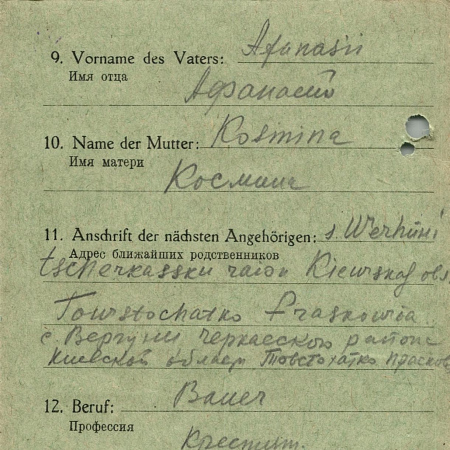 9. Vorname des Vaters: Afanasii
Имя отца
Афанасий
10. Name der Mutter: Kosmina
Имя матери
Космина
11. Anschrift der nächsten Angehörigen: s. Werhuni
Адрес ближайших родственников
tscherkasski raion Kiewskaj obl
Towstochatko Praskowia
с. Вергуни Черкасского района
Киевской област Товстохатко Прасков
12. Beruf: Bauer
Профессия